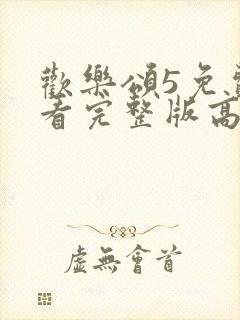 歡樂頌5免
看完整版高
虛無會首